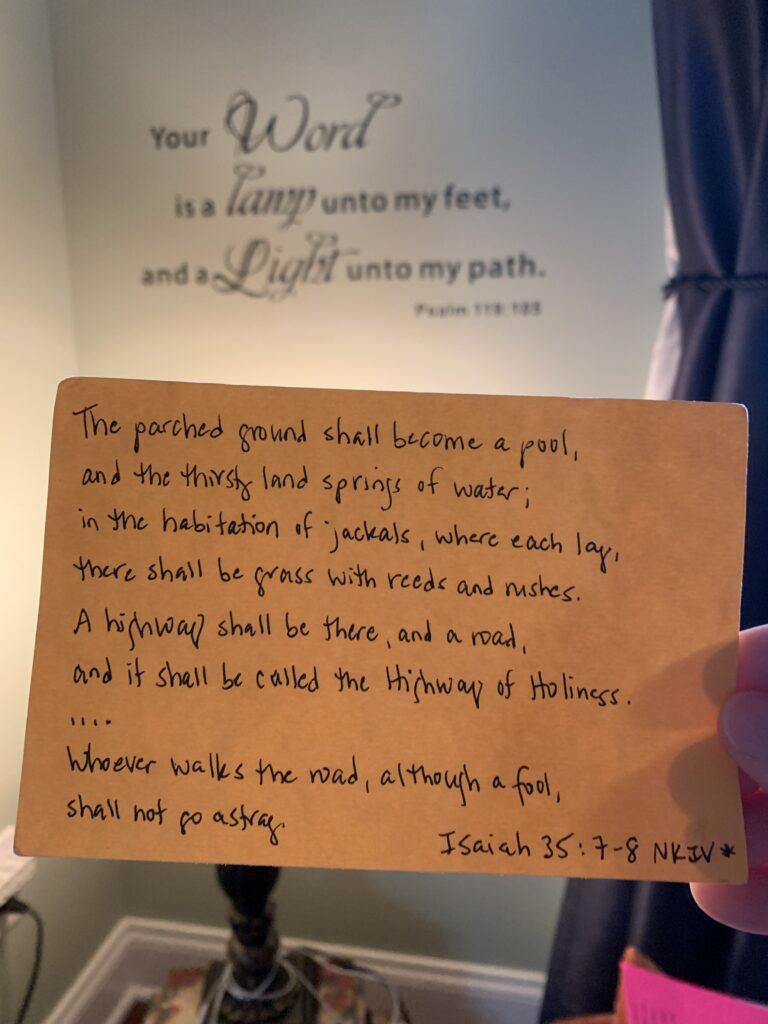 Your Word
is a lamp unto my feet,
and a Light unto my path.
Psalm 119:105
The parched ground shall become a pool,
and the thirsty land springs of water;
in the habitation of jackals, where each lay,
there shall be grass with reeds and rushes.
A highway shall be there, and a road,
and it shall be called the Highway of Holiness.
....
Whoever walks the road, although a fool,
shall not go astray.
Isaiah 35:7-8 NKJV*